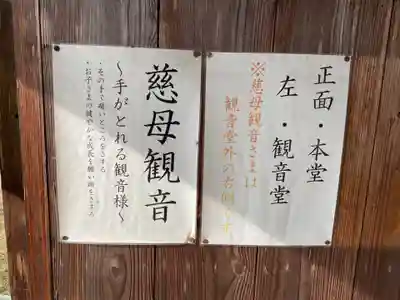 正面・本堂
左・観音堂
※慈母観音さまは
観音堂外の右側です
慈母観音
～手がとれる観音様～
・その手で痛いところをさする
・お子さまの健やかな成長を願い御をさする